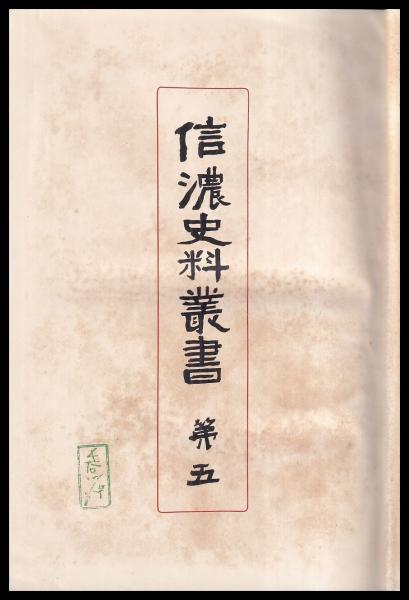 信濃史料叢書 第五